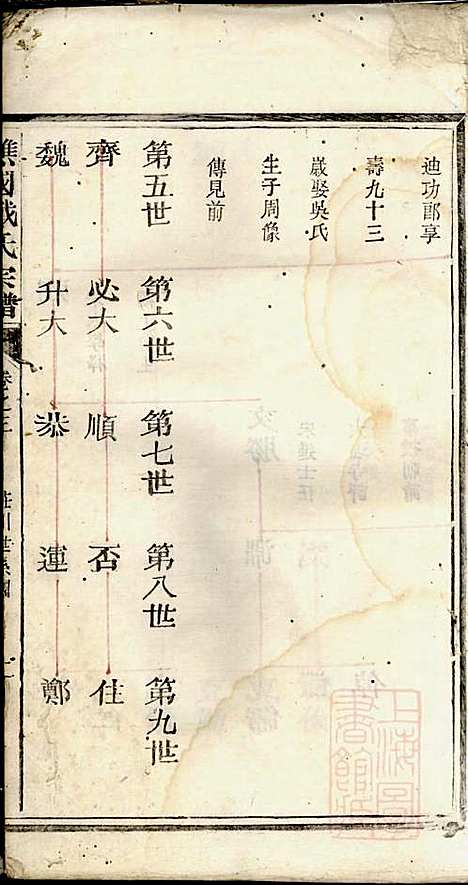 迪功郎享
壽九十三
歲娶吳氏
生子周像
傳見前
第五世 第六世 第七世 第八世 第九世
齊 必大 順 否 住
魏 升大 恭 連 鄭
譙國戴氏宗譜 卷之三
上海圖書館藏